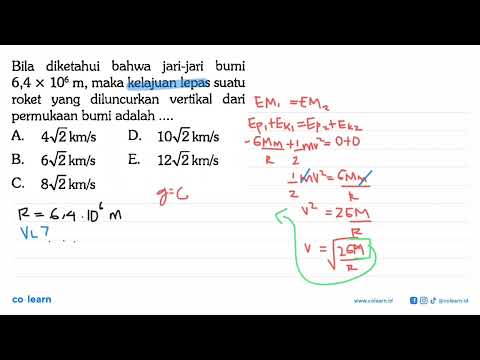 Bila diketahui bahwa jari-jari bumi
6,4 × 10⁶ m, maka kelajuan lepas suatu
roket yang diluncurkan vertikal dari
permukaan bumi adalah ....
A. 4√2 km/s D. 10√2 km/s
B. 6√2 km/s E. 12√2 km/s
C. 8√2 km/s
R = 6,4 . 10⁶ m
VL ? . . .
g = G
EM₁ = EM₂
Ep₁ + Ek₁ = Ep₂ + Ek₂
-GMm/R + 1/2 mv² = 0 + 0
1/2 mv² = GMm/R
v² = 2GM/R
v = √2GM/R
co learn
www.colearn.id @colearn.id